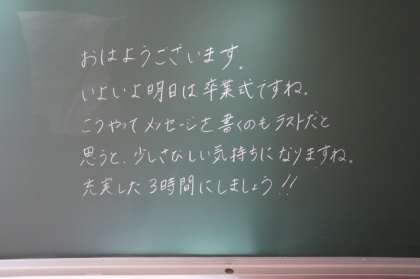 おはようございます。
いよいよ明日は卒業式ですね。
こうやってメッセージを書くのもラストだと
思うと、少しさびしい気持ちになりますね。
充実した3時間にしましょう!!